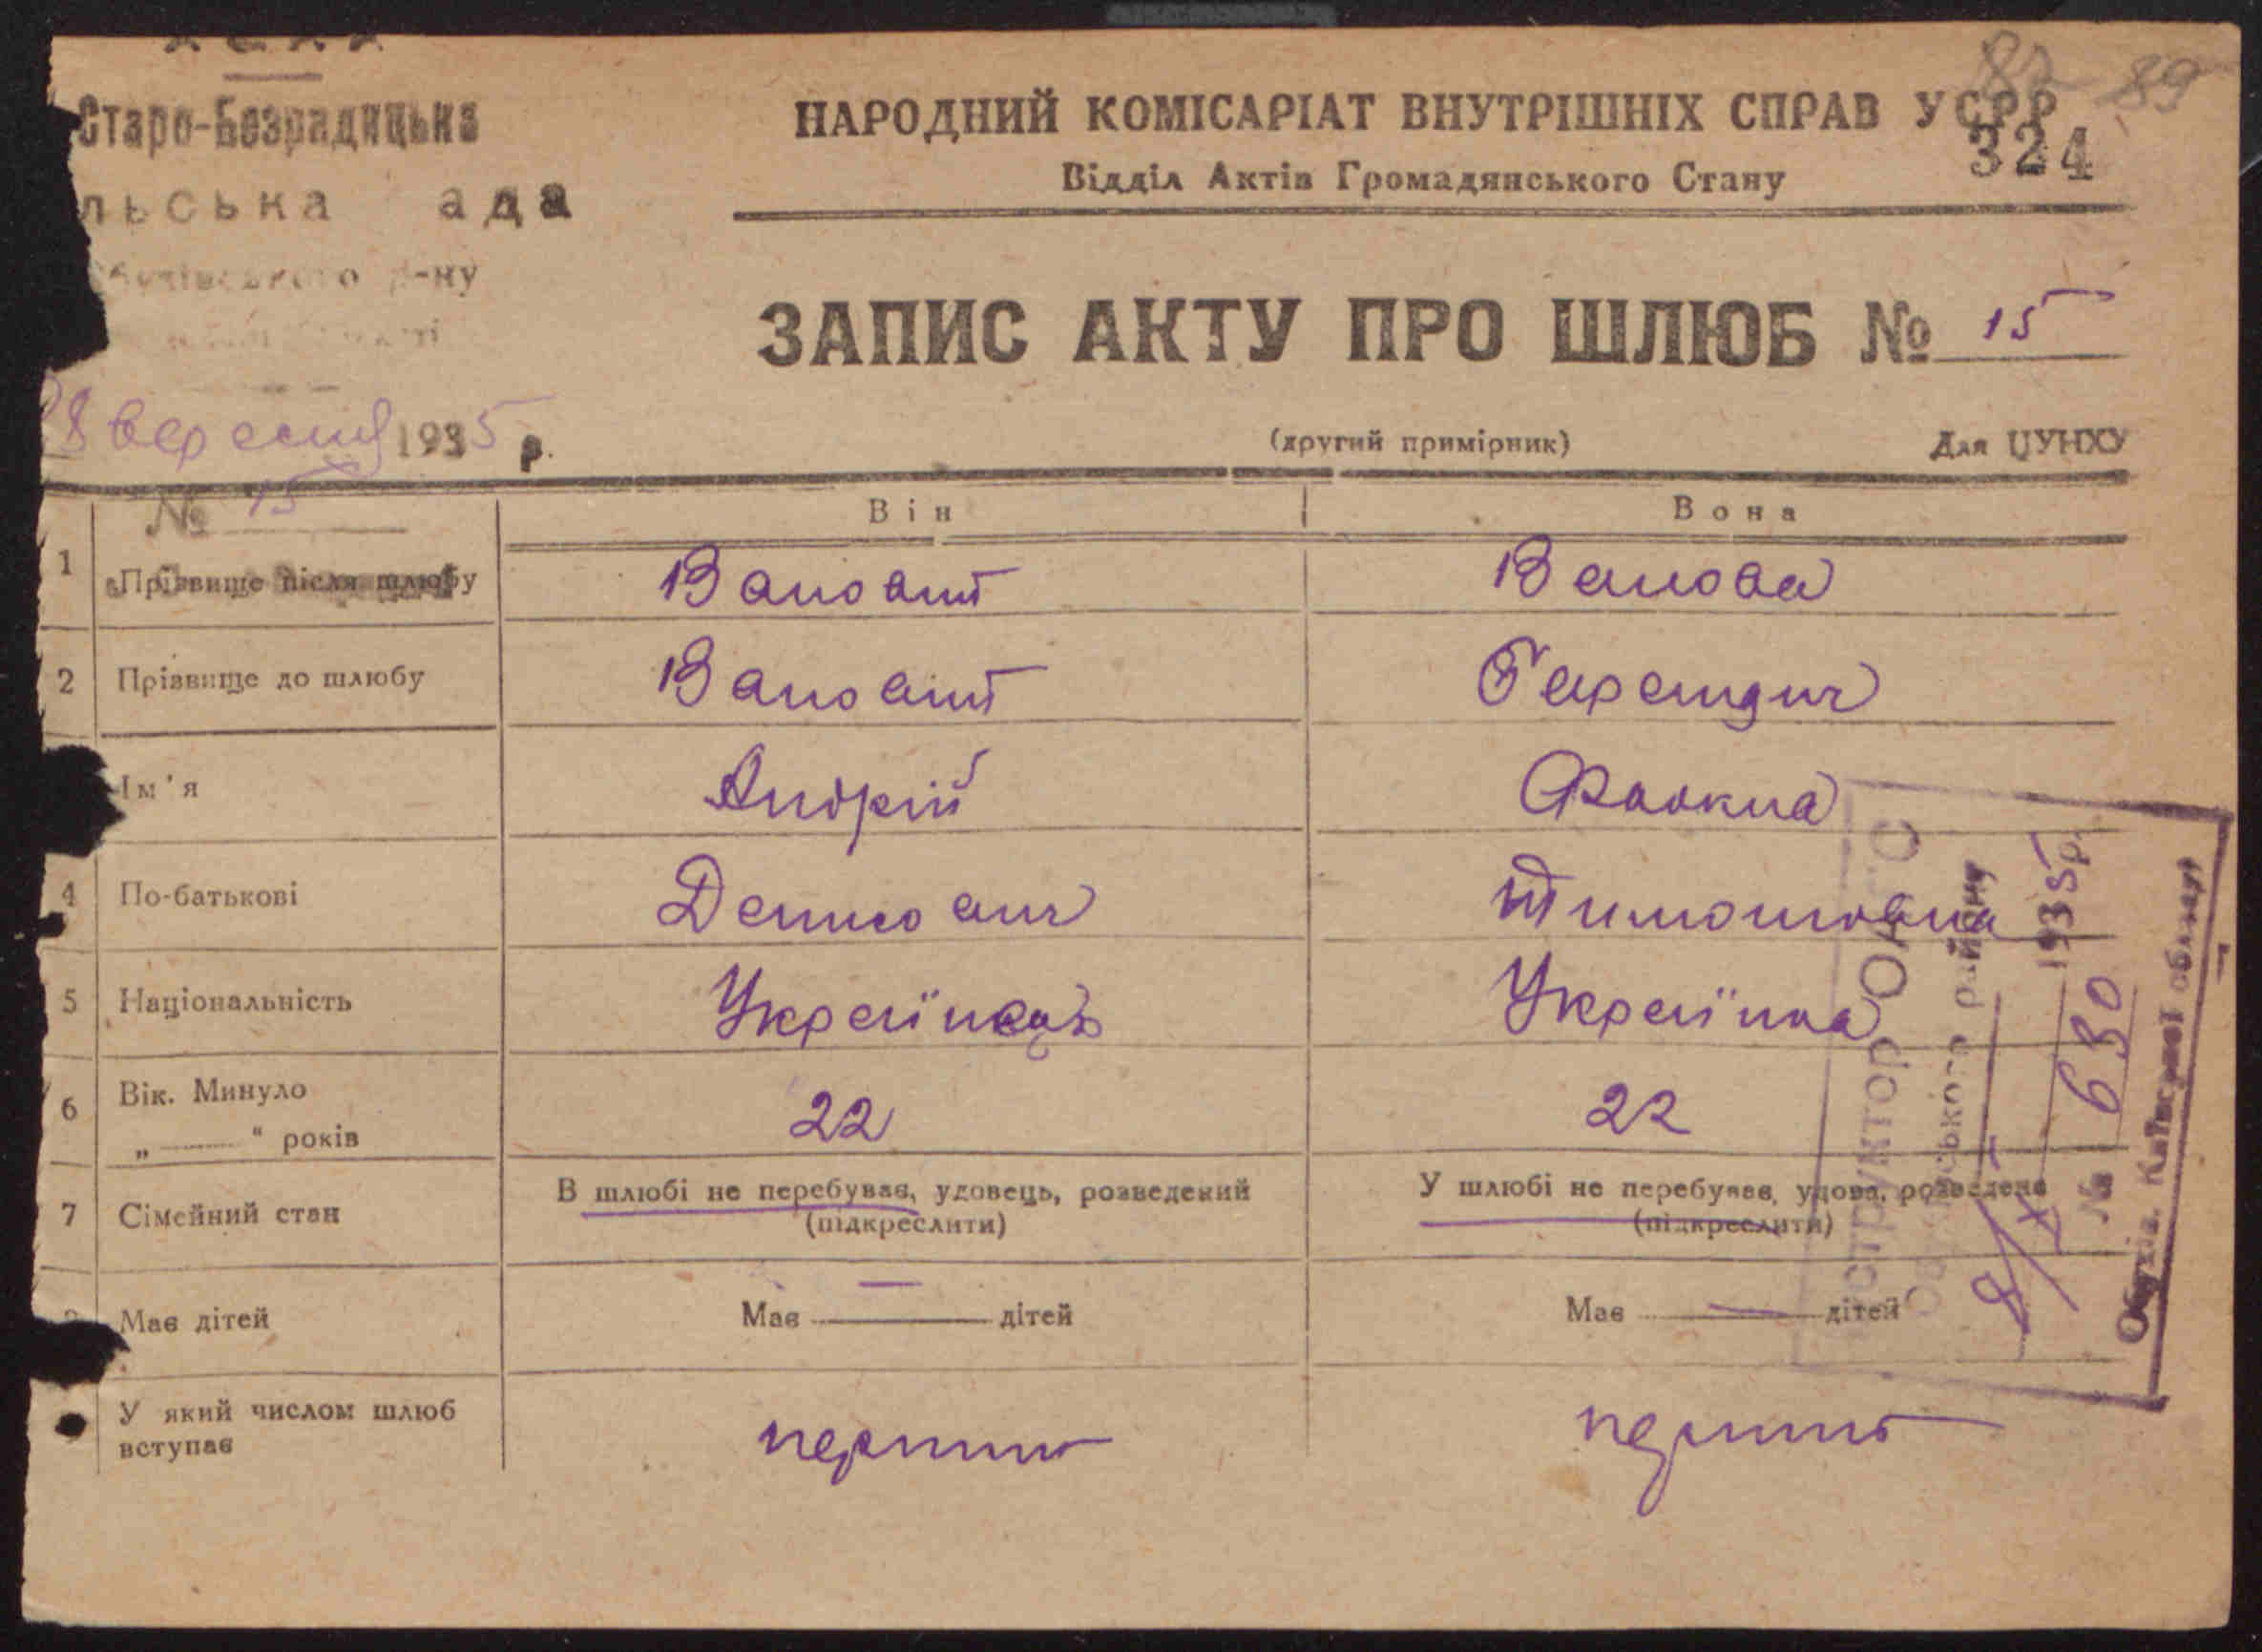 Старо-Безрадицька
льська ада
р-ну
НАРОДНИЙ КОМІСАРІАТ ВНУТРІШНІХ СПРАВ УСРР
82 89
324
Відділ Актів Громадянського Стану
ЗАПИС АКТУ ПРО ШЛЮБ № 15
8 вересня 1935 р.
(другий примірник) Для ЦУНХУ
№ 15
Він Вона
1 Прізвище після шлюбу
2 Прізвище до шлюбу
Ім'я Андрій
4 По-батькові Тимошовна
5 Національність Українець Українка
6 Вік. Минуло
„ “ років 22 22
7 Сімейний стан В шлюбі не перебував, удовець, розведений У шлюбі не перебував, удова, розведена
(підкреслити) (підкреслити)
Має дітей Має — дітей Має — дітей
У який числом шлюб
вступає перший перший
структор ОАГС
ського району
8/X 1935 р.
№ 630
Обухів, Київської області